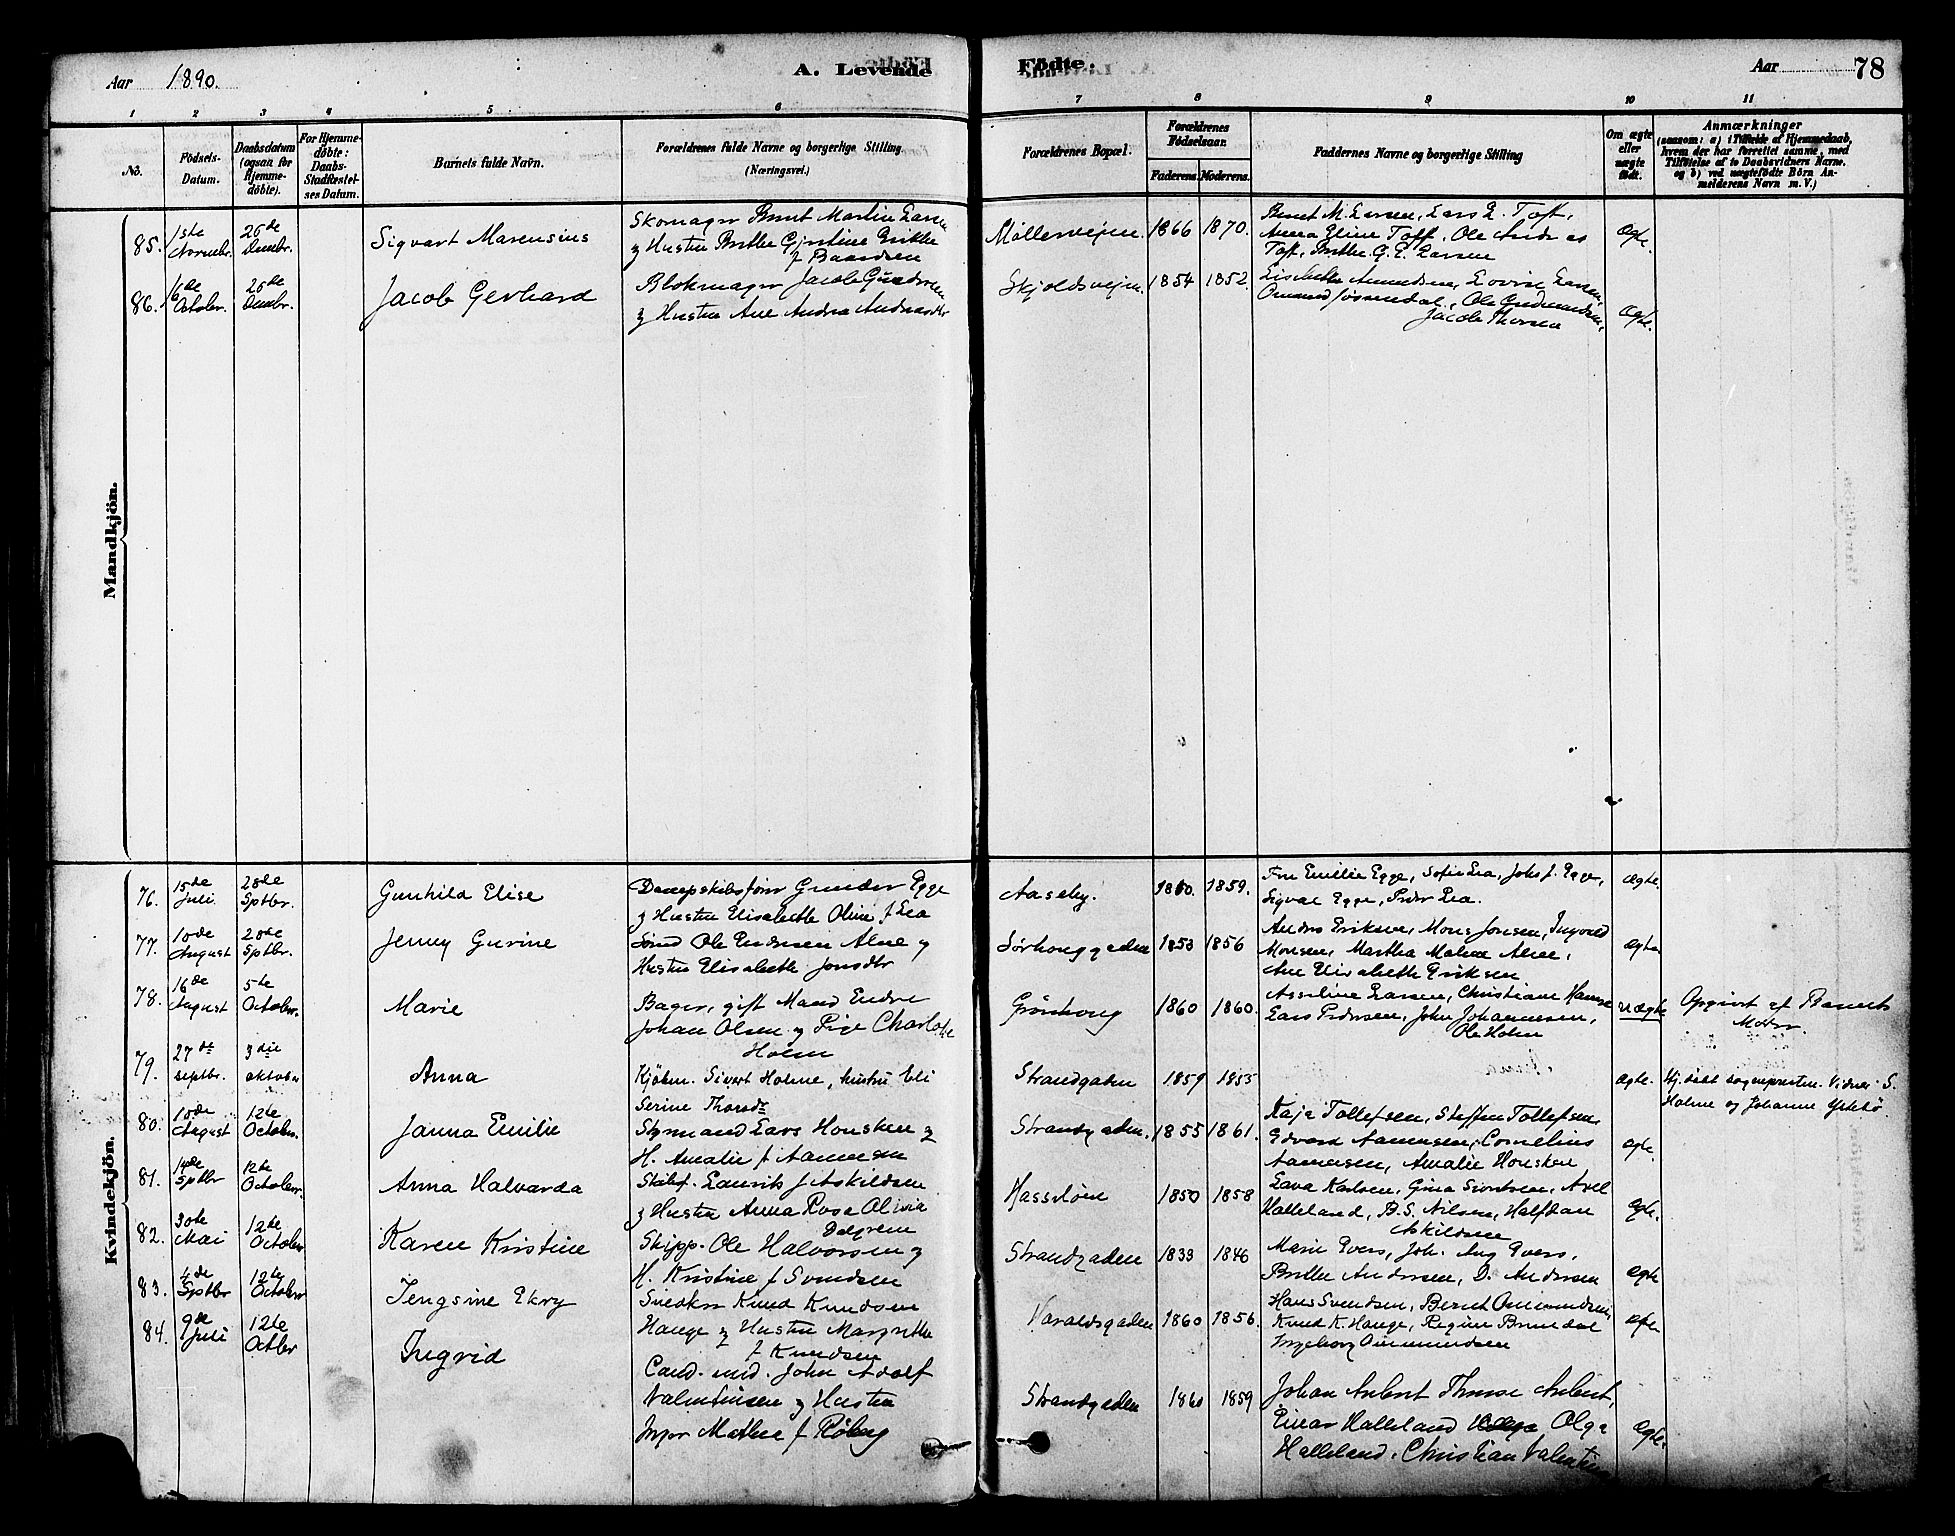 Aar 1890.
A. Levende
Födte.
Aar
78
1 2 3 4 5 6 7 8 9 10 11
No.
Födsels-
Datum.
Daabsdatum
(ogsaa for
Hjemme-
döbte).
For Hjemme-
döbte:
Daabs-
Stadfæstel-
ses Datum.
Barnets fulde Navn.
Forældrenes fulde Navne og borgerlige Stilling
(Næringsvei.)
Forældrenes Bopæl.
Forældrenes
Födselsaar.
Faderens. Moderens.
Faddernes Navne og borgerlige Stilling
Om ægte
eller
uægte
født.
Anmærkninger
(saasom: a) i Tilfælde af Hjemmedaab,
hvem der har forrettet samme, med
Tilföielse af to Daabsvidners Navne,
og b) ved uægtefödte Börn An-
melderens Navn m. V.)
Mandkjön.
85. 1ste Novembr. 26de Decembr.
Sigvart Marensius
Skomager Bernt Martin Larsen
og Hustru Berthe Gjertine Erikke
f Baardsen
Møllerveien. 1866 1870.
Bernt M. Larsen, Lars L. Toft,
Anna Eline Toft, Ole Andreas
Toft, Berthe G. E. Larsen
Ægte.
86. Octobr. 26de Decembr.
Jacob Gerhard
Blokmager Jacob
og Hustru Ane Andrea Andreasdtr
Skjoldsveien. 1854 1852.
Amundsen, Lovise Larsen,
Ole Gudmundsen,
Jacob Thorsen
Ægte.
Kvindekjön.
76. 15de Juli. 28de Sptbr.
Gunhild Elise
Dampskibsfører Gunder Egge
og Hustru Elisabeth Oline f Lea
Aaseby. 1859.
Fru Emilie Egge, Sofie Lea, Johs J. Egge,
Sigval Egge, Peder Lea.
Ægte.
77. 10de August 28de Sptbr.
Jenny Gurine
Ole Endresen Alne og
Hustru Elisabeth Jonsdtr
Sørhouggaden 1853 1856
Anders Eriksen, Mons Jonsen, Ingvald
Monsen, Martha Malene Alne,
Ane Elisabeth Eriksen
Ægte
78. 16de August 5te Octobr.
Marie
Bager, gift Mand Endre
Johan Olsen og Pige Charlotte
Holm
Grønhoug 1860 1860.
Asseline Larsen, Christiane Hansen
Lars Pedersen, John Johannesen,
Ole Holm
uægte
Opgivet af Barnets
Moder.
79. 27de septbr. 3die oktober
Anna
Kjøbm. Sivert Holme, hustru Eli
Serine Thorsdr.
Strandgaden 1859 1855
Ægte.
Hj.døbt sognepresten. Vidner S.
Holme og Johanne
80. 10de August 12te Octobr.
Janna Emilie
Styrmand Lars Housken og
H. Amalie f Aamensen
Strandgaden. 1855 1861.
Kaja Tollefsen, Steffen Tollefsen
Edvard Aamensen, Cornelius
Aamensen, Amalie Housken
Ægte.
81. 14de Sptbr 12te Octobr.
Anna Halvarda
Laurits J. Askildsen
og Hustru Anna Rosa Olivia
Dalgreen
Hasseløen 1850 1858
Lava Karlsen, Gina Sivertsen, Axel
Halleland, B.S. Nilsen, Halfdan
Askildsen
Ægte.
82. 30te Mai 12te Octobr
Karen Kristine
Skipp. Ole Halvorsen og
H. Kristine f Svendsen
Strandgaden 1833 1846
Marie Evers, Joh. Aug Evers,
Berthe Andersen, D. Andersen
Ægte
83. Sptbr 12te Octobr
Jengsine Ekry
Snedker Knud Knudsen
Hauge og Hustru Margrethe
f Knudsen
Haraldsgaden 1860 1856.
Hans Svendsen, Berent Ommundsen,
Knud K. Hauge, Regine Brundal
Ingeborg Ommundsen
Ægte
84. 9de Juli 12te Octbr
Ingrid
Cand. med. John Adolf
Valentinsen og Hustru
Inger Mathea f Røberg
Strandgaden 1860 1859
Johan Anbert Anbert,
Einar Halleland Olga
Halleland, Christian Valentinsen
Ægte.